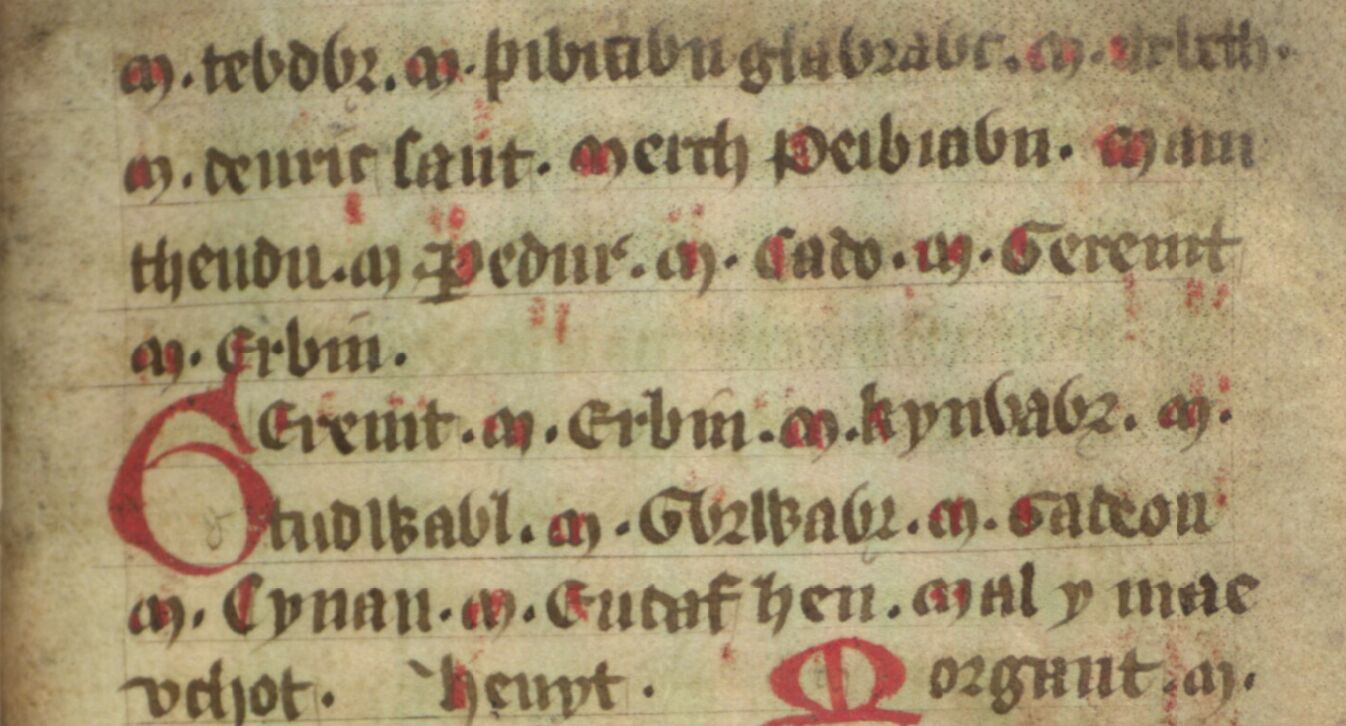 m. tevdvr. m. pibiavn glavravc. m. arbeth.
m. denric sant. merch peibiavn. mam
theudu. m Pedur. m. Cado. m. Gereint
m. Erbin.
GEreint. m. Erbin. m. kynvavr. m.
tudwavl. m. Gvrwavr. m. Gadeon
m. Cynan. m. Eudaf hen. mal y mae
vchot. henyt. Morgant. m.